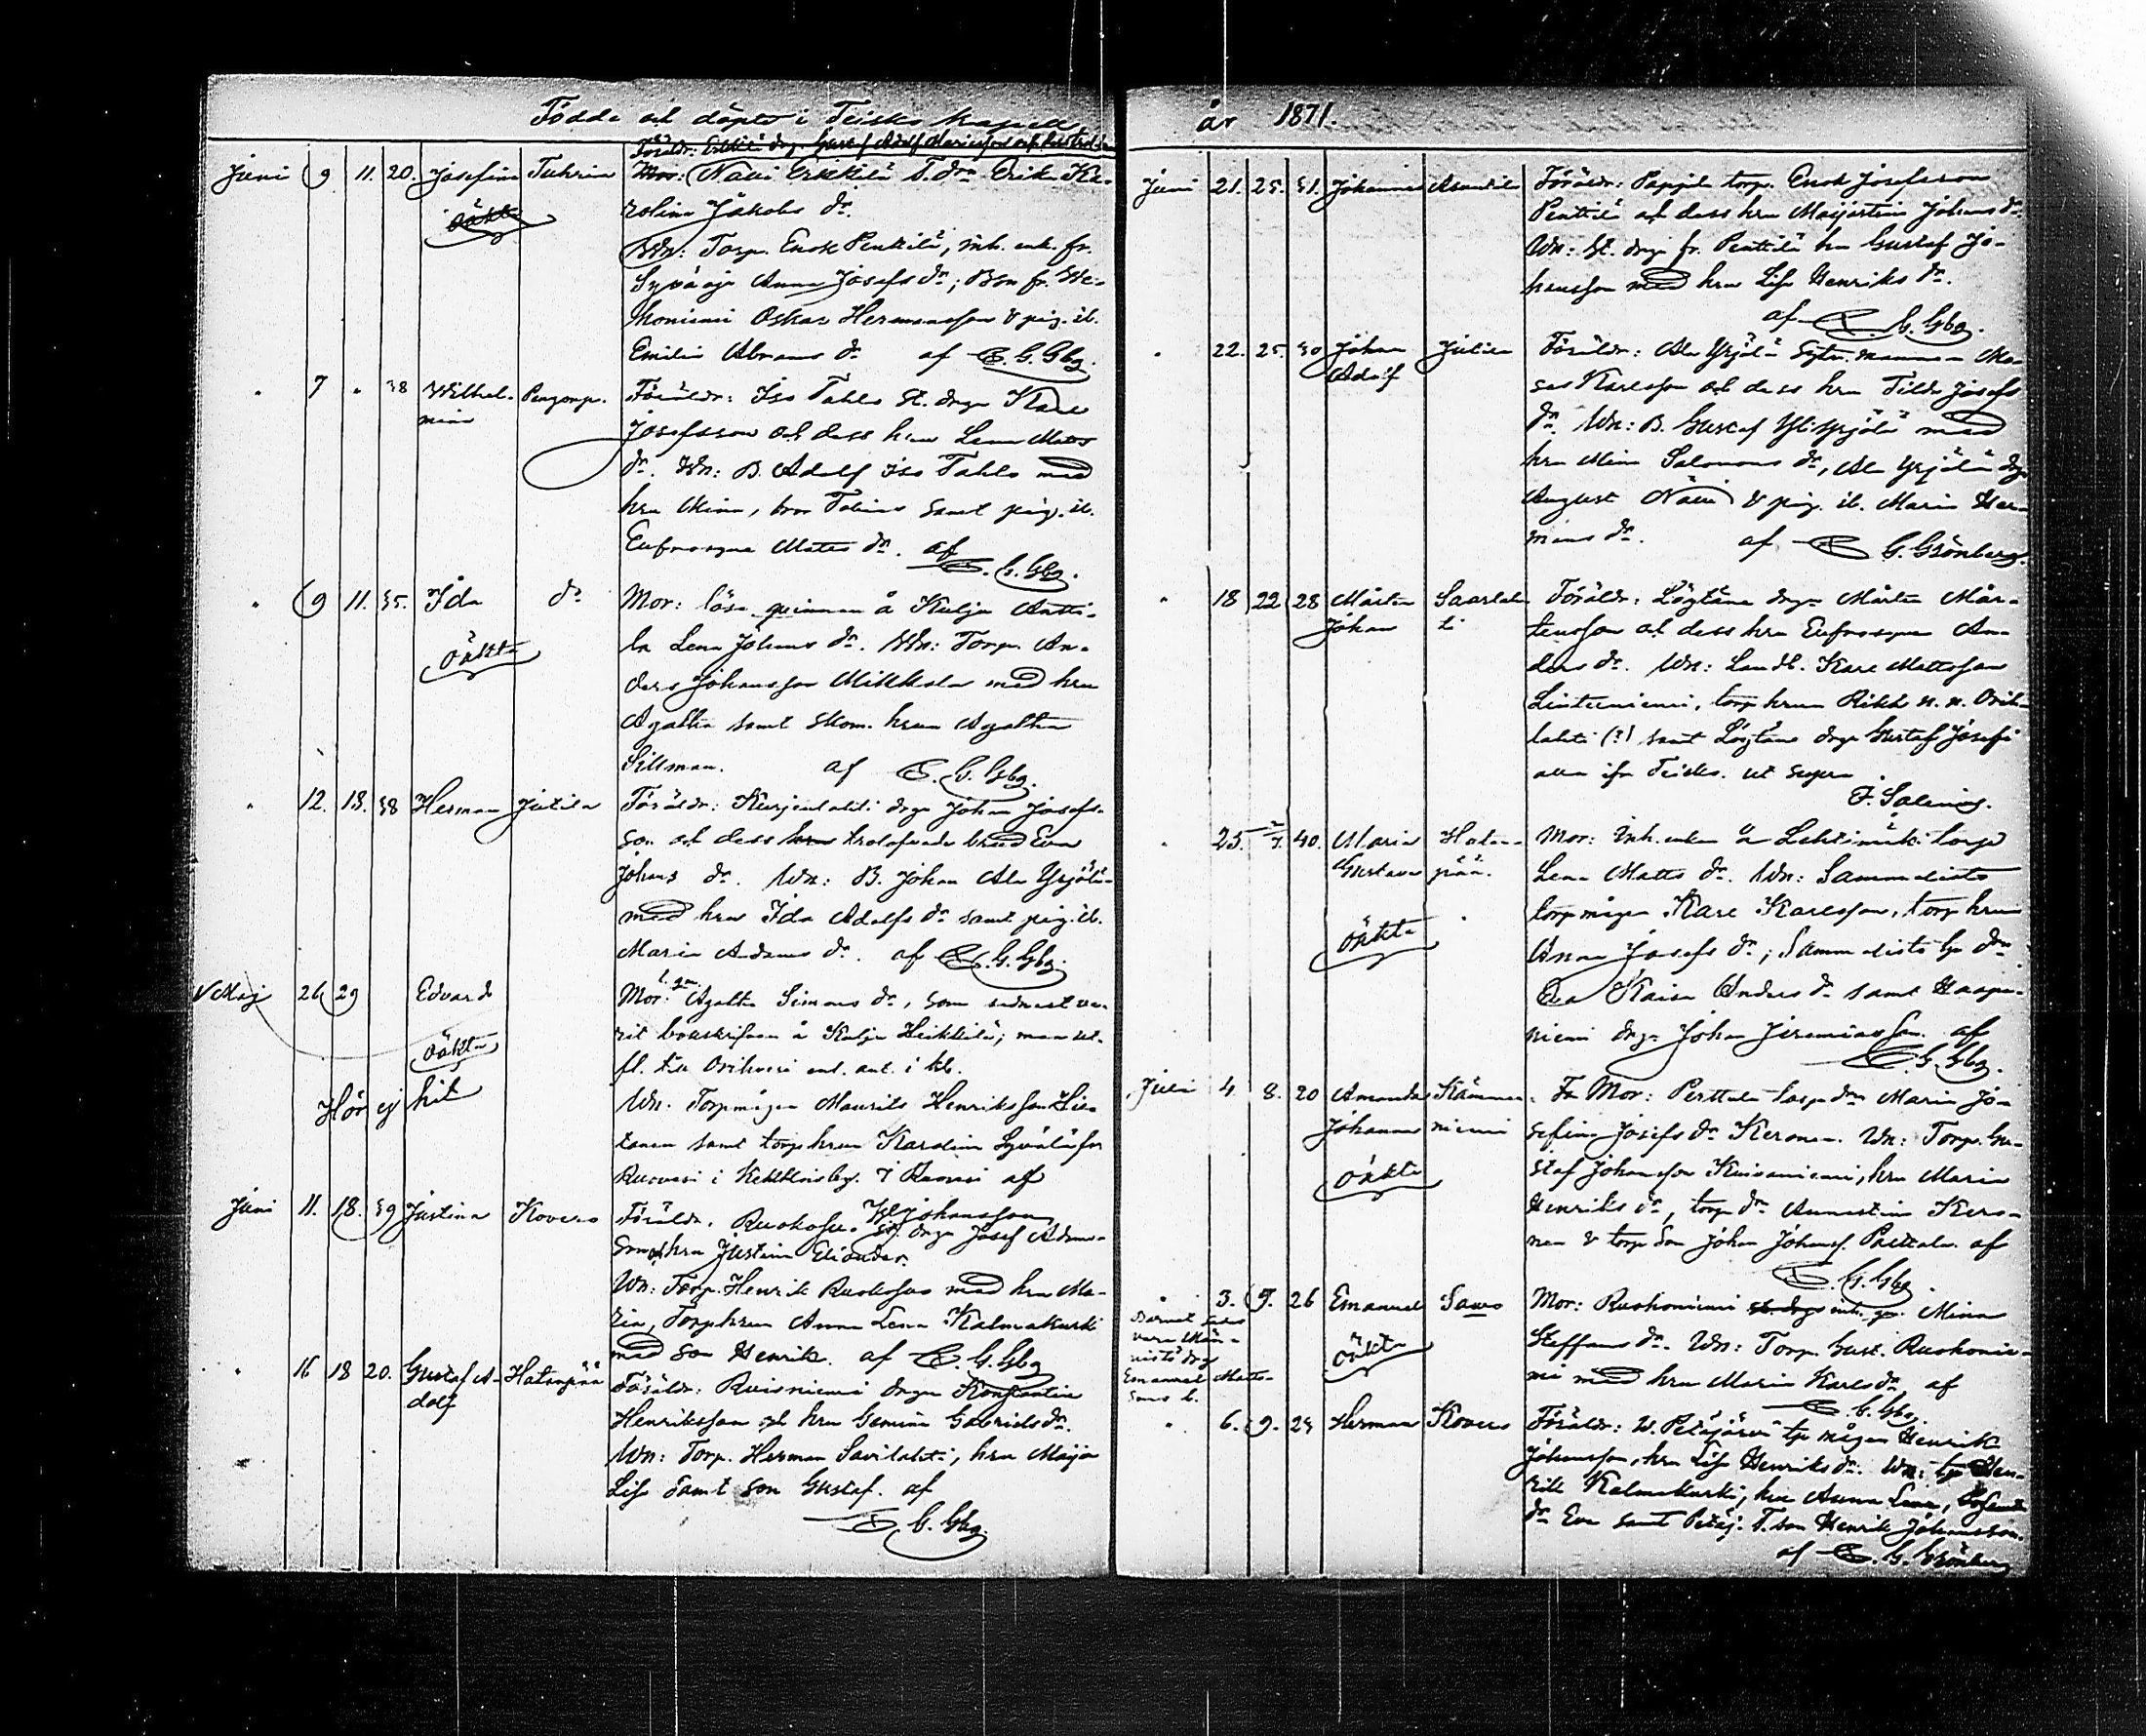 Födde och döpte i Teisko kapell
år 1871.
Juni 9 11. 20. Josefina Tuhrin
Mor: Näsi Erkkilä T. dr Erika Ka-
rolina Jakobs dr.
Wn: Torp. Enok Penttilä, inh. enk. fr.
Syväoja Anna Josefs dr; Bson fr. We-
honiemi Oskar Hermansson & pig. ib.
Emilia Abrams dr af C. G. Gbg.
" 7 " 38 Wilhel-
mina
Föräldr: Iso Tahlo st. drg Karl
Josefsson och dess hru Lena Matts
dr. Wn: B. Adolf Iso Tahlo med
hru Mina, bror Tobias samt pig. ib.
Eufrosyne Matts dr. af C. G. Gbg.
" 9 11. 35. Ida dr
oäkta
Mor: lösa qvinnan å Kulju Antti-
la Lena Johans dr. Wn: Torp. An-
ders Johansson Mikkola med hru
Agatha samt skom. hrun Agatha
Sillman. af C. G. Gbg.
" 12. 18. 38 Herman Jutila
Föräldr: Kurjenlahti drg Johan Josefs-
son och dess trolofvade brud Eva
Johans dr. Wn: B. Johan Ala Yrjölä
med hru Ida Adolfs dr samt pig. ib.
Maria Adams dr. af C. G. Gbg.
V Maj 26 29 Edvard
oäkta
Hör ej hit
Mor: Agatha Simons dr, som sednast va-
rit bokskrifven å Kulju Heikkilä; men ut-
fl. till Orihvesi enl. ant. i kb.
Wn: Torpmågen Maurits Henriksson Hie-
tanen samt torp hrun Karolina Syvälä fr
Ruovesi i Kekkosby. I Ruovesi af
Hj. Johansson
Juni 11. 18. 39 Justina Kovero
Föräldr. Ruokosu. st. drg Josef Adams-
son och hru Justina Eliasdr.
Wn: Torp. Henrik Ruokosuo med hru Ma-
ria, Torp hrun Anna Lena Kalmakurki
med son Henrik. af C. G. Gbg
" 16 18 20. Gustaf A-
dolf Hatanpää
Föräldr: Ruisniemi drg Konstantin
Henriksson och hru Gemima Gabriels dr.
Wn: Torp. Herman Savilahti, hru Maija
Lisa samt son Gustaf. af
C. G. Gbg.
Juni 21. 25. 31. Johannes Asuntila
Föräldr: Papila torp. Enok Josefsson
Penttilä och dess hru Maijastina Johans dr.
Wn: st. drg fr. Penttilä hru Gustaf Jo-
hansson med hru Lisa Henriks dr.
af C. G. Gbg.
" 22. 25. 30 Johan
Adolf Jutila
Föräldr: Ala Yrjölä Sytn. mannen Mo-
ses Karlsson och dess hru Tilda Josefs
dr. Wn: B. Gustaf Yli Yrjölä med
hru Mina Salomons dr, Ala Yrjölä drg
August Näsi & pig. ib. Maria Her-
mans dr. af C. G. Grönberg.
" 18 22 28 Mårten
Johan Saarlah-
ti
Föräldr: Lögtäne drg Mårten Mår-
tensson och dess hru Eufrosyne An-
ders dr. Wn: Landb. Karl Mattsson
Linteeniemi, torp hrun Rikk n. n. Orih-
lahti (?) samt Lögtäne drg Gustaf Josefs
alla ifr. Teisko. ut supra
F. Salenius.
" 25. 2/7. 40. Maria
Gustava Hatan-
pää.
oäkta
Mor: Inh. enkan å Lehtimäki torp
Lena Matts dr. Wn: Sammalisto
torpmågen Karl Karlsson, torp hrun
Anna Josefs dr; Sammalisto tp dr
Eva Kaisa Anders dr samt Haapa-
niemi drg Johan Jeremiasson. af
C. G. Gbg.
Juli 4. 8. 20 Amanda
Johanna Kämmen-
niemi
oäkta
Mor: Perttula torp dr Maria Jo-
sefina Josefs dr Keronen. Wn: Torp. Gu-
staf Johansson Kuusniemi, hru Maria
Henriks dr, torp dr Annastina Kero-
nen & torp son Johan Johanss. Perttula. af
C. G. Gbg.
" 3. 9. 26 Emanuel Savo
oäkta
Barnet säges
vara Män-
nistö drg
Emanuel Matts-
sons b.
Mor: Ruohoniemi inh. qv. Mina
Steffans dr. Wn: Torp. Gust. Ruohonie-
mi med hru Maria Karls dr, af
C. G. Gbg.
" 6. 9. 29 Herman Kovero
Föräldr: W. Petäjärvi tp mågen Henrik
Johansson, hru Lisa Henriks dr. Wn: tp Hen-
rik Kalmakurki, hru Anna Lena,
dr Eva samt Petäj. T. son Henrik Johansson.
af C. G. Grönberg